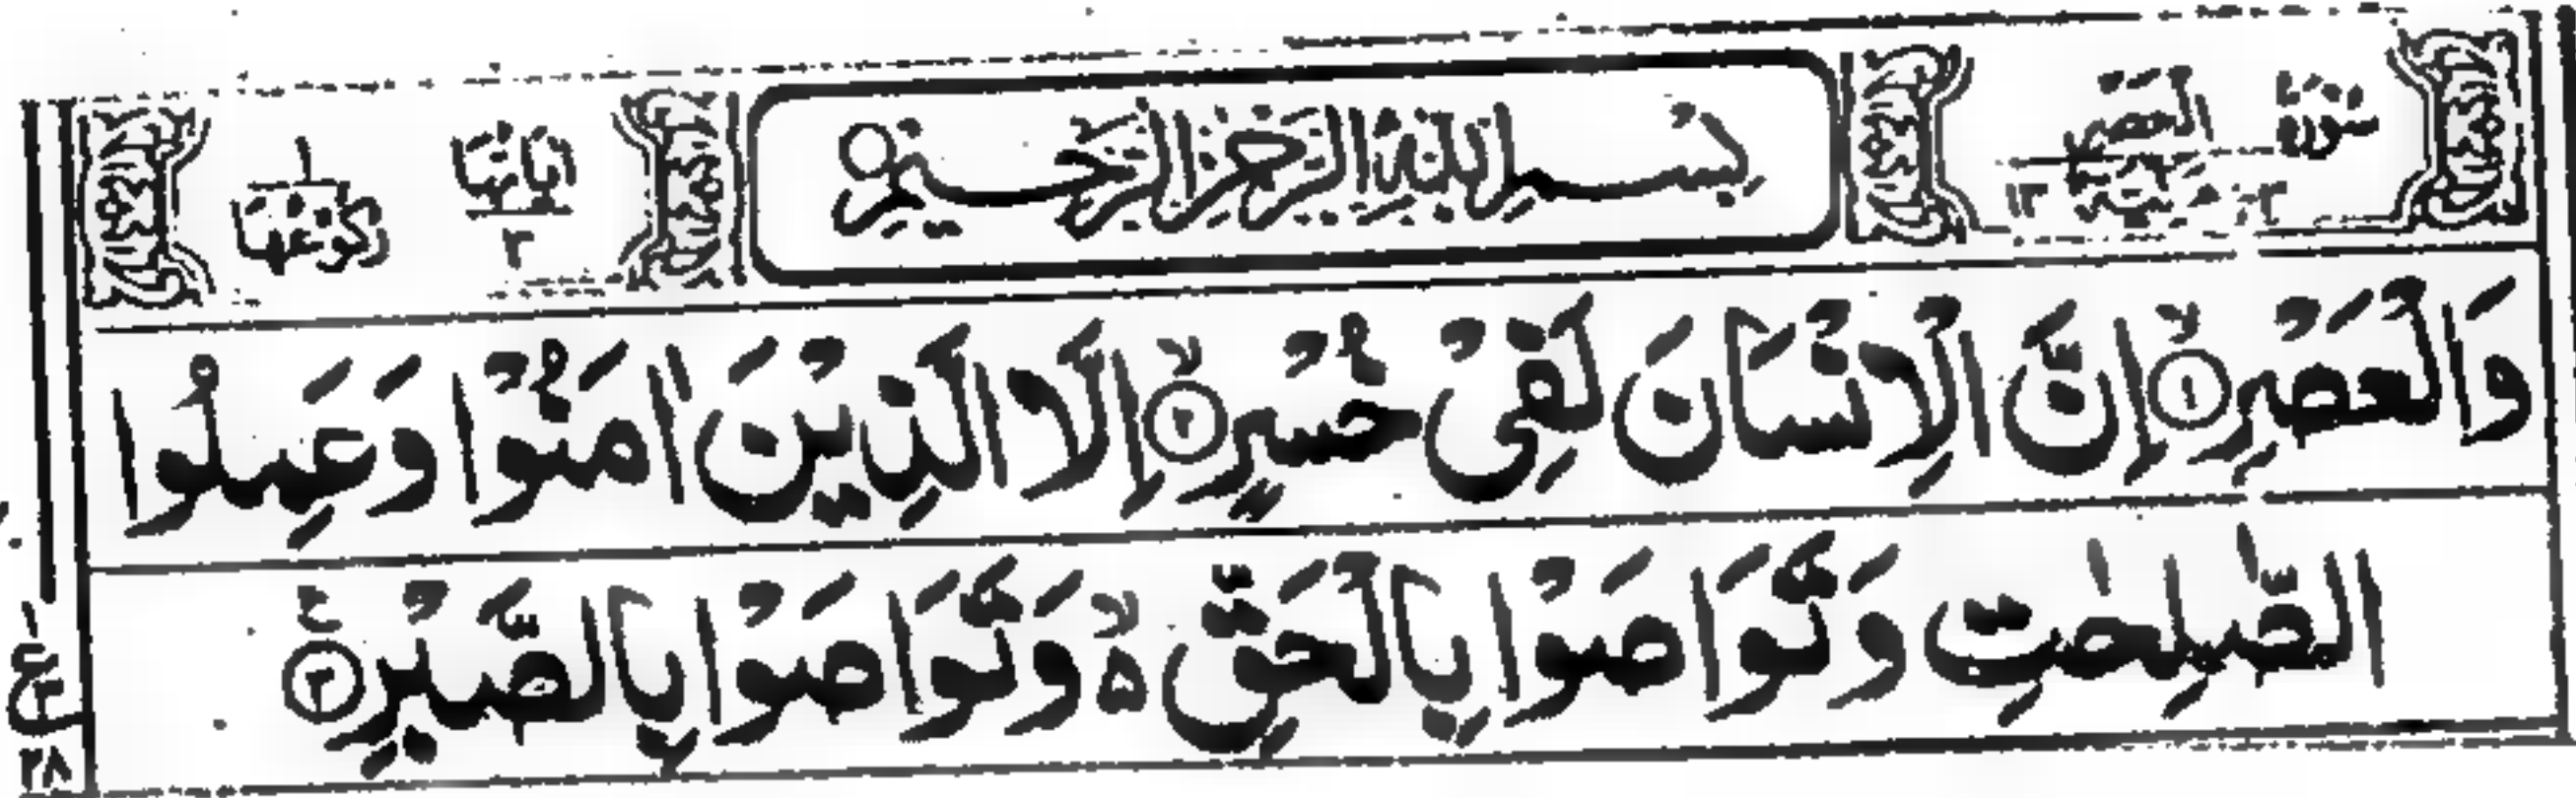 سُوْرَةُ الْعَصْرِ مَكِّيَّةٌ ١٣
بِسْمِ اللّٰهِ الرَّحْمٰنِ الرَّحِيْمِ ○
اٰيَاتُهَا ٣ رُكُوْعُهَا ١
وَالْعَصْرِ ۙ﴿۱﴾ اِنَّ الْاِنْسَانَ لَفِىْ خُسْرٍ ۙ﴿۲﴾ اِلَّا الَّذِيْنَ اٰمَنُوْا وَعَمِلُوا
الصّٰلِحٰتِ وَتَوَاصَوْا بِالْحَقِّ ۵ۙ وَتَوَاصَوْا بِالصَّبْرِ ﴿۳﴾ ع
ع ١ ٢٨